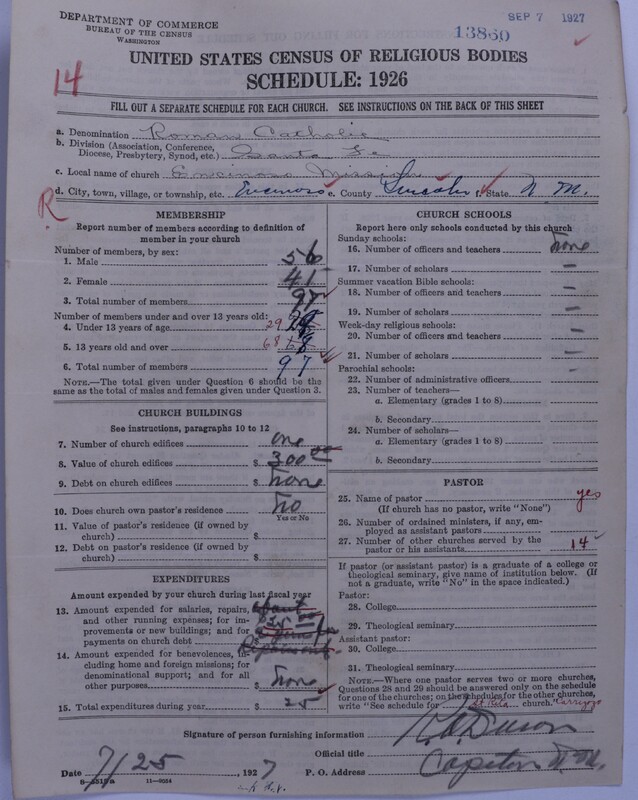 DEPARTMENT OF COMMERCE
BUREAU OF THE CENSUS
WASHINGTON
SEP 7 1927
13860
UNITED STATES CENSUS OF RELIGIOUS BODIES
SCHEDULE: 1926
14
FILL OUT A SEPARATE SCHEDULE FOR EACH CHURCH. SEE INSTRUCTIONS ON THE BACK OF THIS SHEET
a. Denomination Roman Catholic
b. Division (Association, Conference,
Diocese, Presbytery, Synod, etc.) Santa Fe
c. Local name of church Encinoso Mission
d. City, town, village, or township, etc. Encinoso e. County Lincoln f. State N M.
R
MEMBERSHIP
Report number of members according to definition of
member in your church
Number of members, by sex:
1. Male 56
2. Female 41
3. Total number of members 97
Number of members under and over 13 years old:
4. Under 13 years of age 29
5. 13 years old and over 68 68
6. Total number of members 97
NOTE.—The total given under Question 6 should be
the same as the total of males and females given under Question 3.
CHURCH BUILDINGS
See instructions, paragraphs 10 to 12
7. Number of church edifices one
8. Value of church edifices $ 300 00
9. Debt on church edifices $ none
10. Does church own pastor's residence no
Yes or No
11. Value of pastor's residence (if owned by
church) $
12. Debt on pastor's residence (if owned by
church) $
EXPENDITURES
Amount expended by your church during last fiscal year
13. Amount expended for salaries, repairs,
and other running expenses; for im-
provements or new buildings; and for
payments on church debt
about
$25 00
14. Amount expended for benevolences, in-
cluding home and foreign missions; for
denominational support; and for all
other purposes $ none
15. Total expenditures during year $ 25
CHURCH SCHOOLS
Report here only schools conducted by this church
Sunday schools:
16. Number of officers and teachers none
17. Number of scholars —
Summer vacation Bible schools:
18. Number of officers and teachers —
19. Number of scholars —
Week-day religious schools:
20. Number of officers and teachers —
21. Number of scholars —
Parochial schools:
22. Number of administrative officers
23. Number of teachers—
a. Elementary (grades 1 to 8)
b. Secondary
24. Number of scholars—
a. Elementary (grades 1 to 8)
b. Secondary
PASTOR
25. Name of pastor yes
(If church has no pastor, write "None")
26. Number of ordained ministers, if any, em-
ployed as assistant pastors
27. Number of other churches served by the
pastor or his assistants 14
If pastor (or assistant pastor) is a graduate of a college or
theological seminary, give name of institution below. (If
not a graduate, write "No" in the space indicated.)
Pastor:
28. College
29. Theological seminary
Assistant pastor:
30. College
31. Theological seminary
NOTE.—Where one pastor serves two or more churches,
Questions 28 and 29 should be answered only on the schedule
for one of the churches; on the schedules for the other churches,
write "See schedule for St Rita church." Carrizozo
Signature of person furnishing information
Official title
Date 7/25, 1927 P. O. Address Capitan N. M.
11—9024